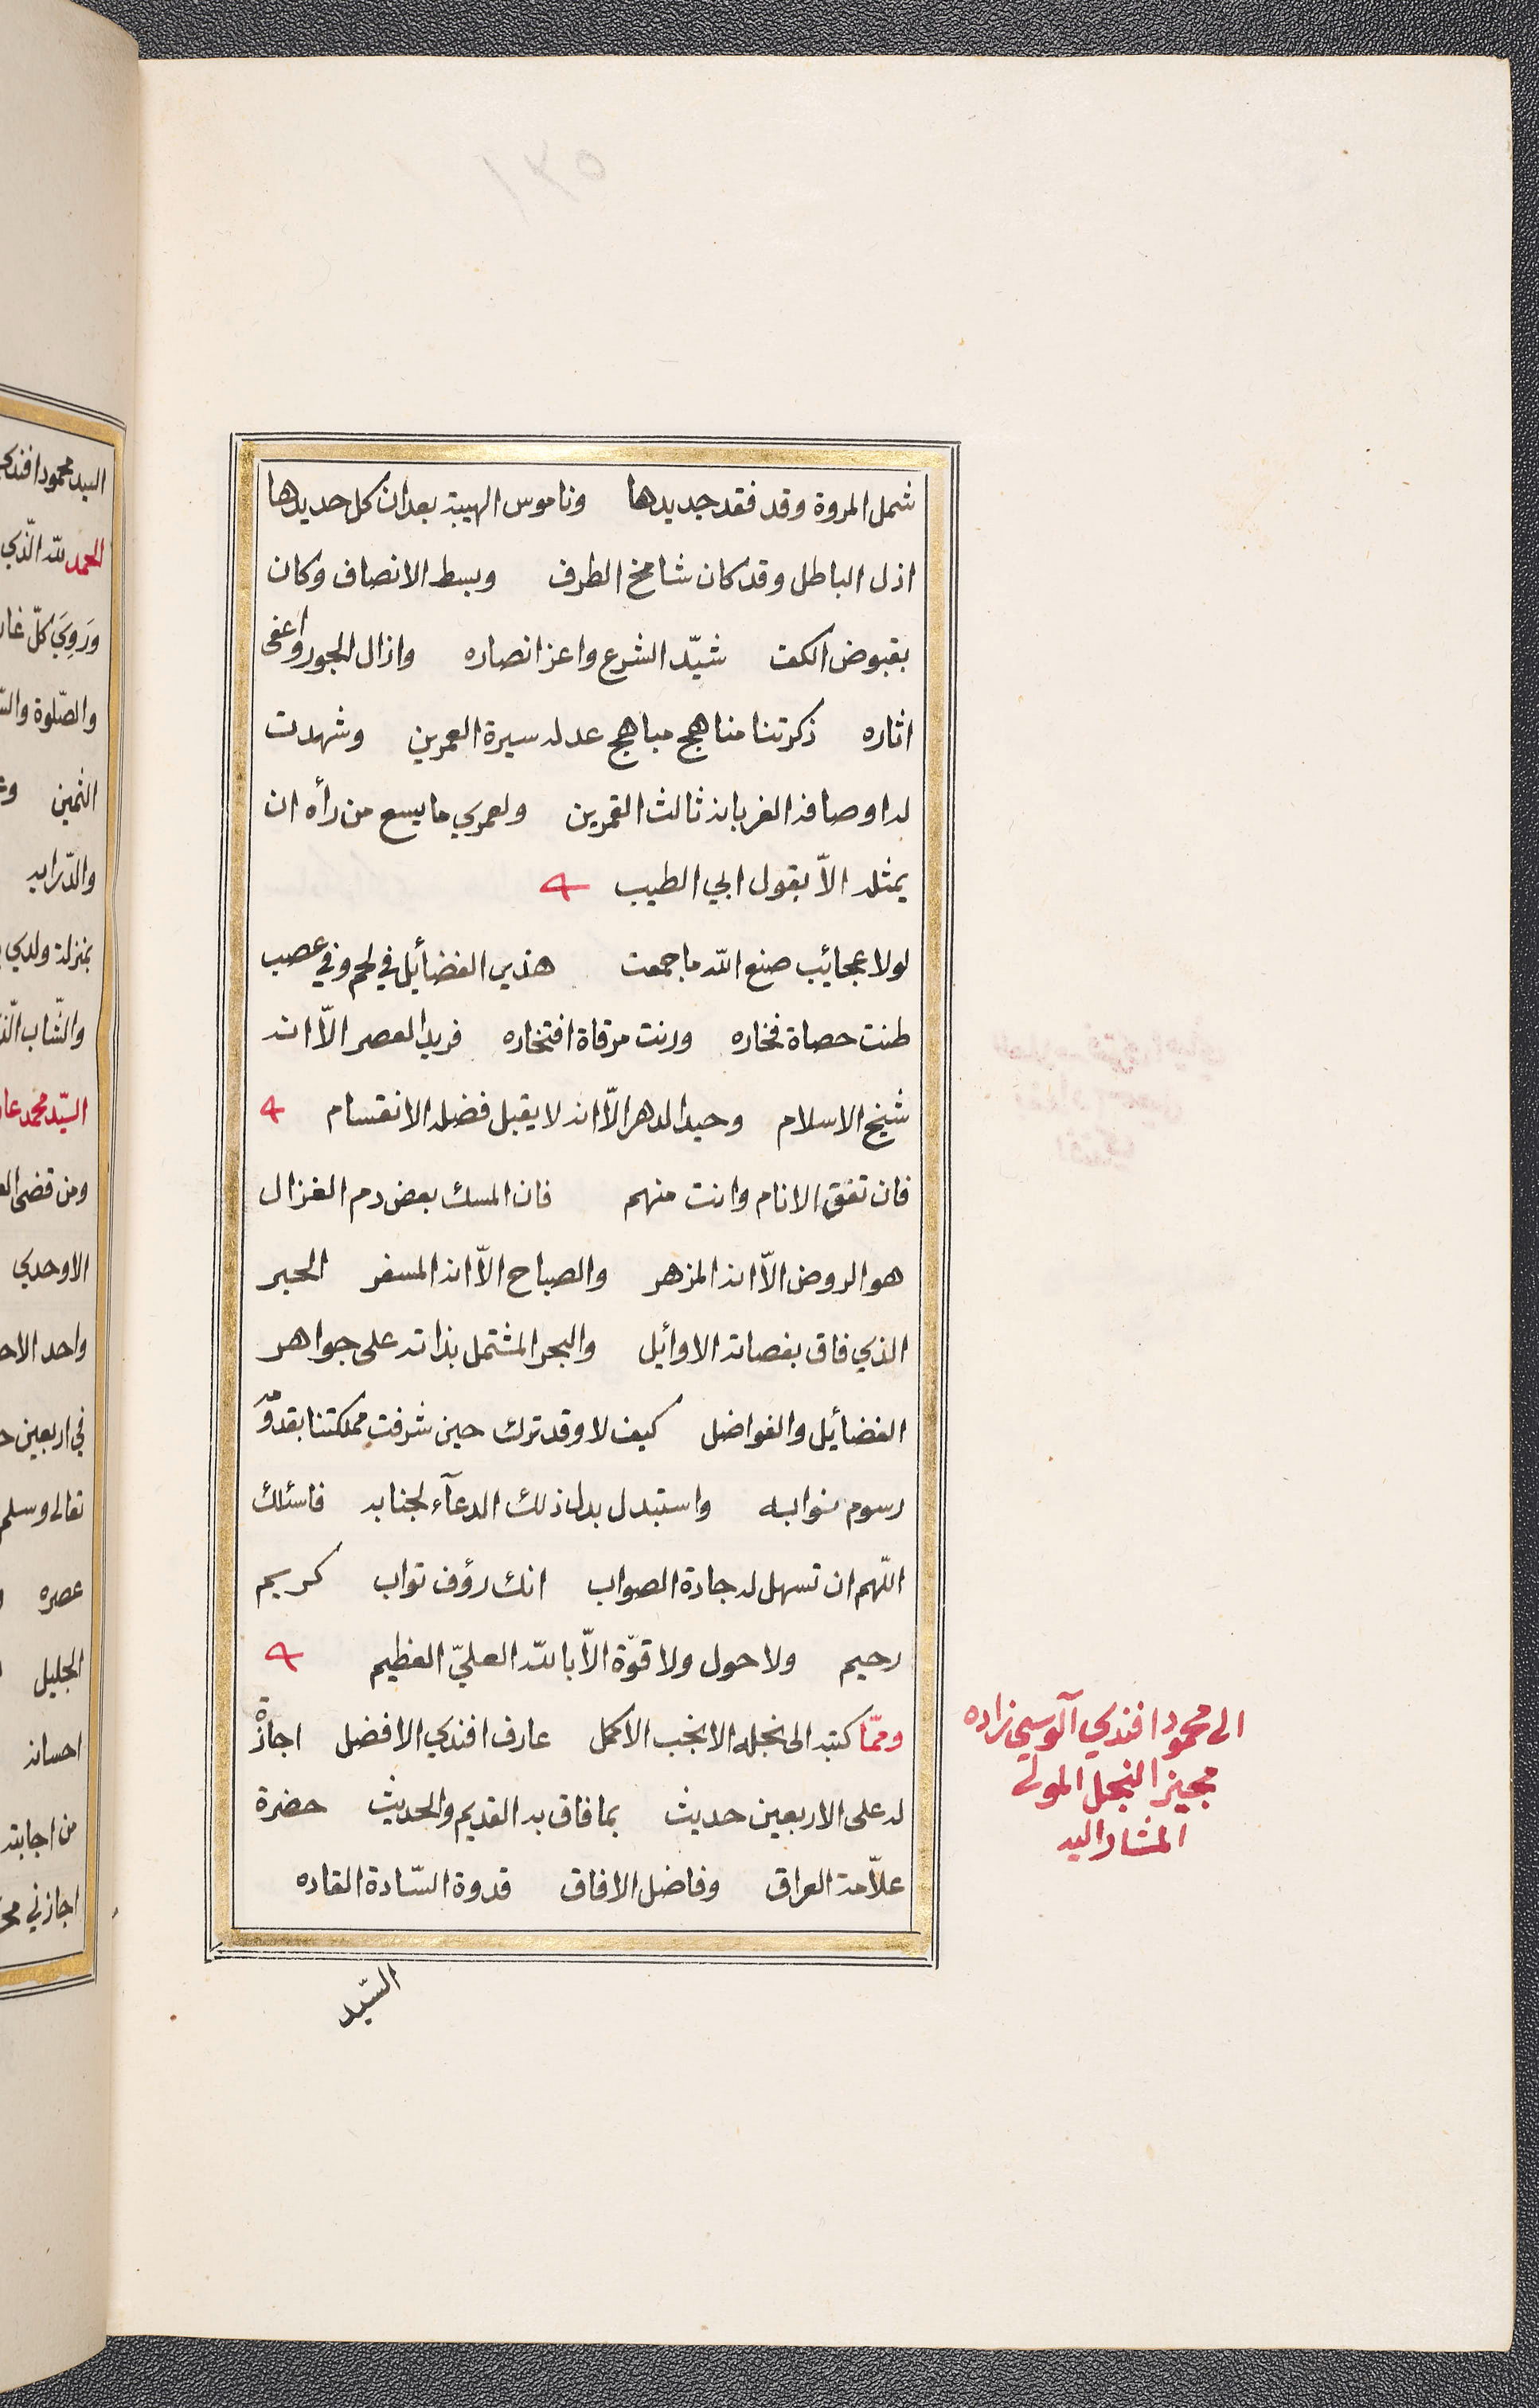 شمل المروة وقد فقد جديدها وناموس الهيبة بعد ان كل حديدها
اذل الباطل وقد كان شامخ الطرف وبسط الانصاف وكان
بقبوض الكف شيّد الشرع واعز انصاره وازال الجور واعفى
اثاره ذكرتنا مناهج مباهج عدله سيرة العمرين وشهدت
له اوصافه الغر بانه ثالث القمرين ولعمري ما يسع من رأه ان
يمثله الاّ بقول ابي الطيب
لولا عجائيب صنع الله ما جمعت هذي الفضأيل في لحم وفي عصب
طنت حصاة فخاره ورنت مرقاة افتخاره فريد العصر الاّ انه
شيخ الاسلام وحيد الدهر الاّ انه لا يقبل فضله الانقسام
فان تفق الانام وانت منهم فان المسك بعض دم الغزال
هو الروض الاّ انه المزهر والصباح الاّ انه المسفر الحبر
الذي فاق بفصاته الاوأيل والبحر المشتمل بذاته على جواهر
الفضأيل والفواضل كيف لا وقد ترك حين شرفت مملكتنا بقدومه
رسوم نوابه واستبدل بدل ذلك الدعآء لجنابه فاسئلك
اللّهم ان تسهل له جادة الصواب انك رؤف تواب كريم
رحيم ولا حول ولا قوّة الاّ بالله العليّ العظيم
وممّا كتبه الى نجله الانجب الاكمل عارف افندي الافضل اجازة
له على الاربعين حديث بما فاق به القديم والحديث حضرة
علاّمة العراق وفاضل الافاق قدوة السّادة القاده
السّيد
الى محمود افندي آلوسي زاده
مجيز النجل المولى
المشار اليه
السيد محمود افندي
الحمد لله الّذي
وَرَوِيَ كلّ
والصّلوة
الثمين
والدّرايه
بمنزلة ولدي
والشّاب
السيّد محمد
ومن قضى
الاوحدي
واحد
في اربعين
تعالى وسلم
عصره
الجليل
احسانه
من اجابته
اجازني